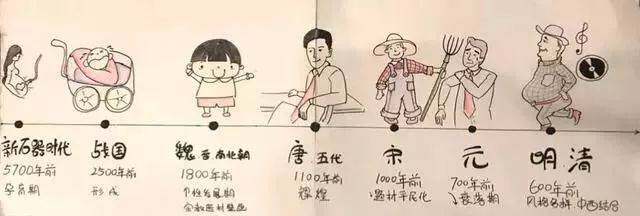 新石器时代
5700年前
孕育期
战国
2500年前
形成
魏晋南北朝
1800年前
个性发展期
宗教
壁画
唐 五代
1100年前
辉煌
宋
1000年前
题材平民化
元
700年前
明 清
600年前
风格多样 中西结合